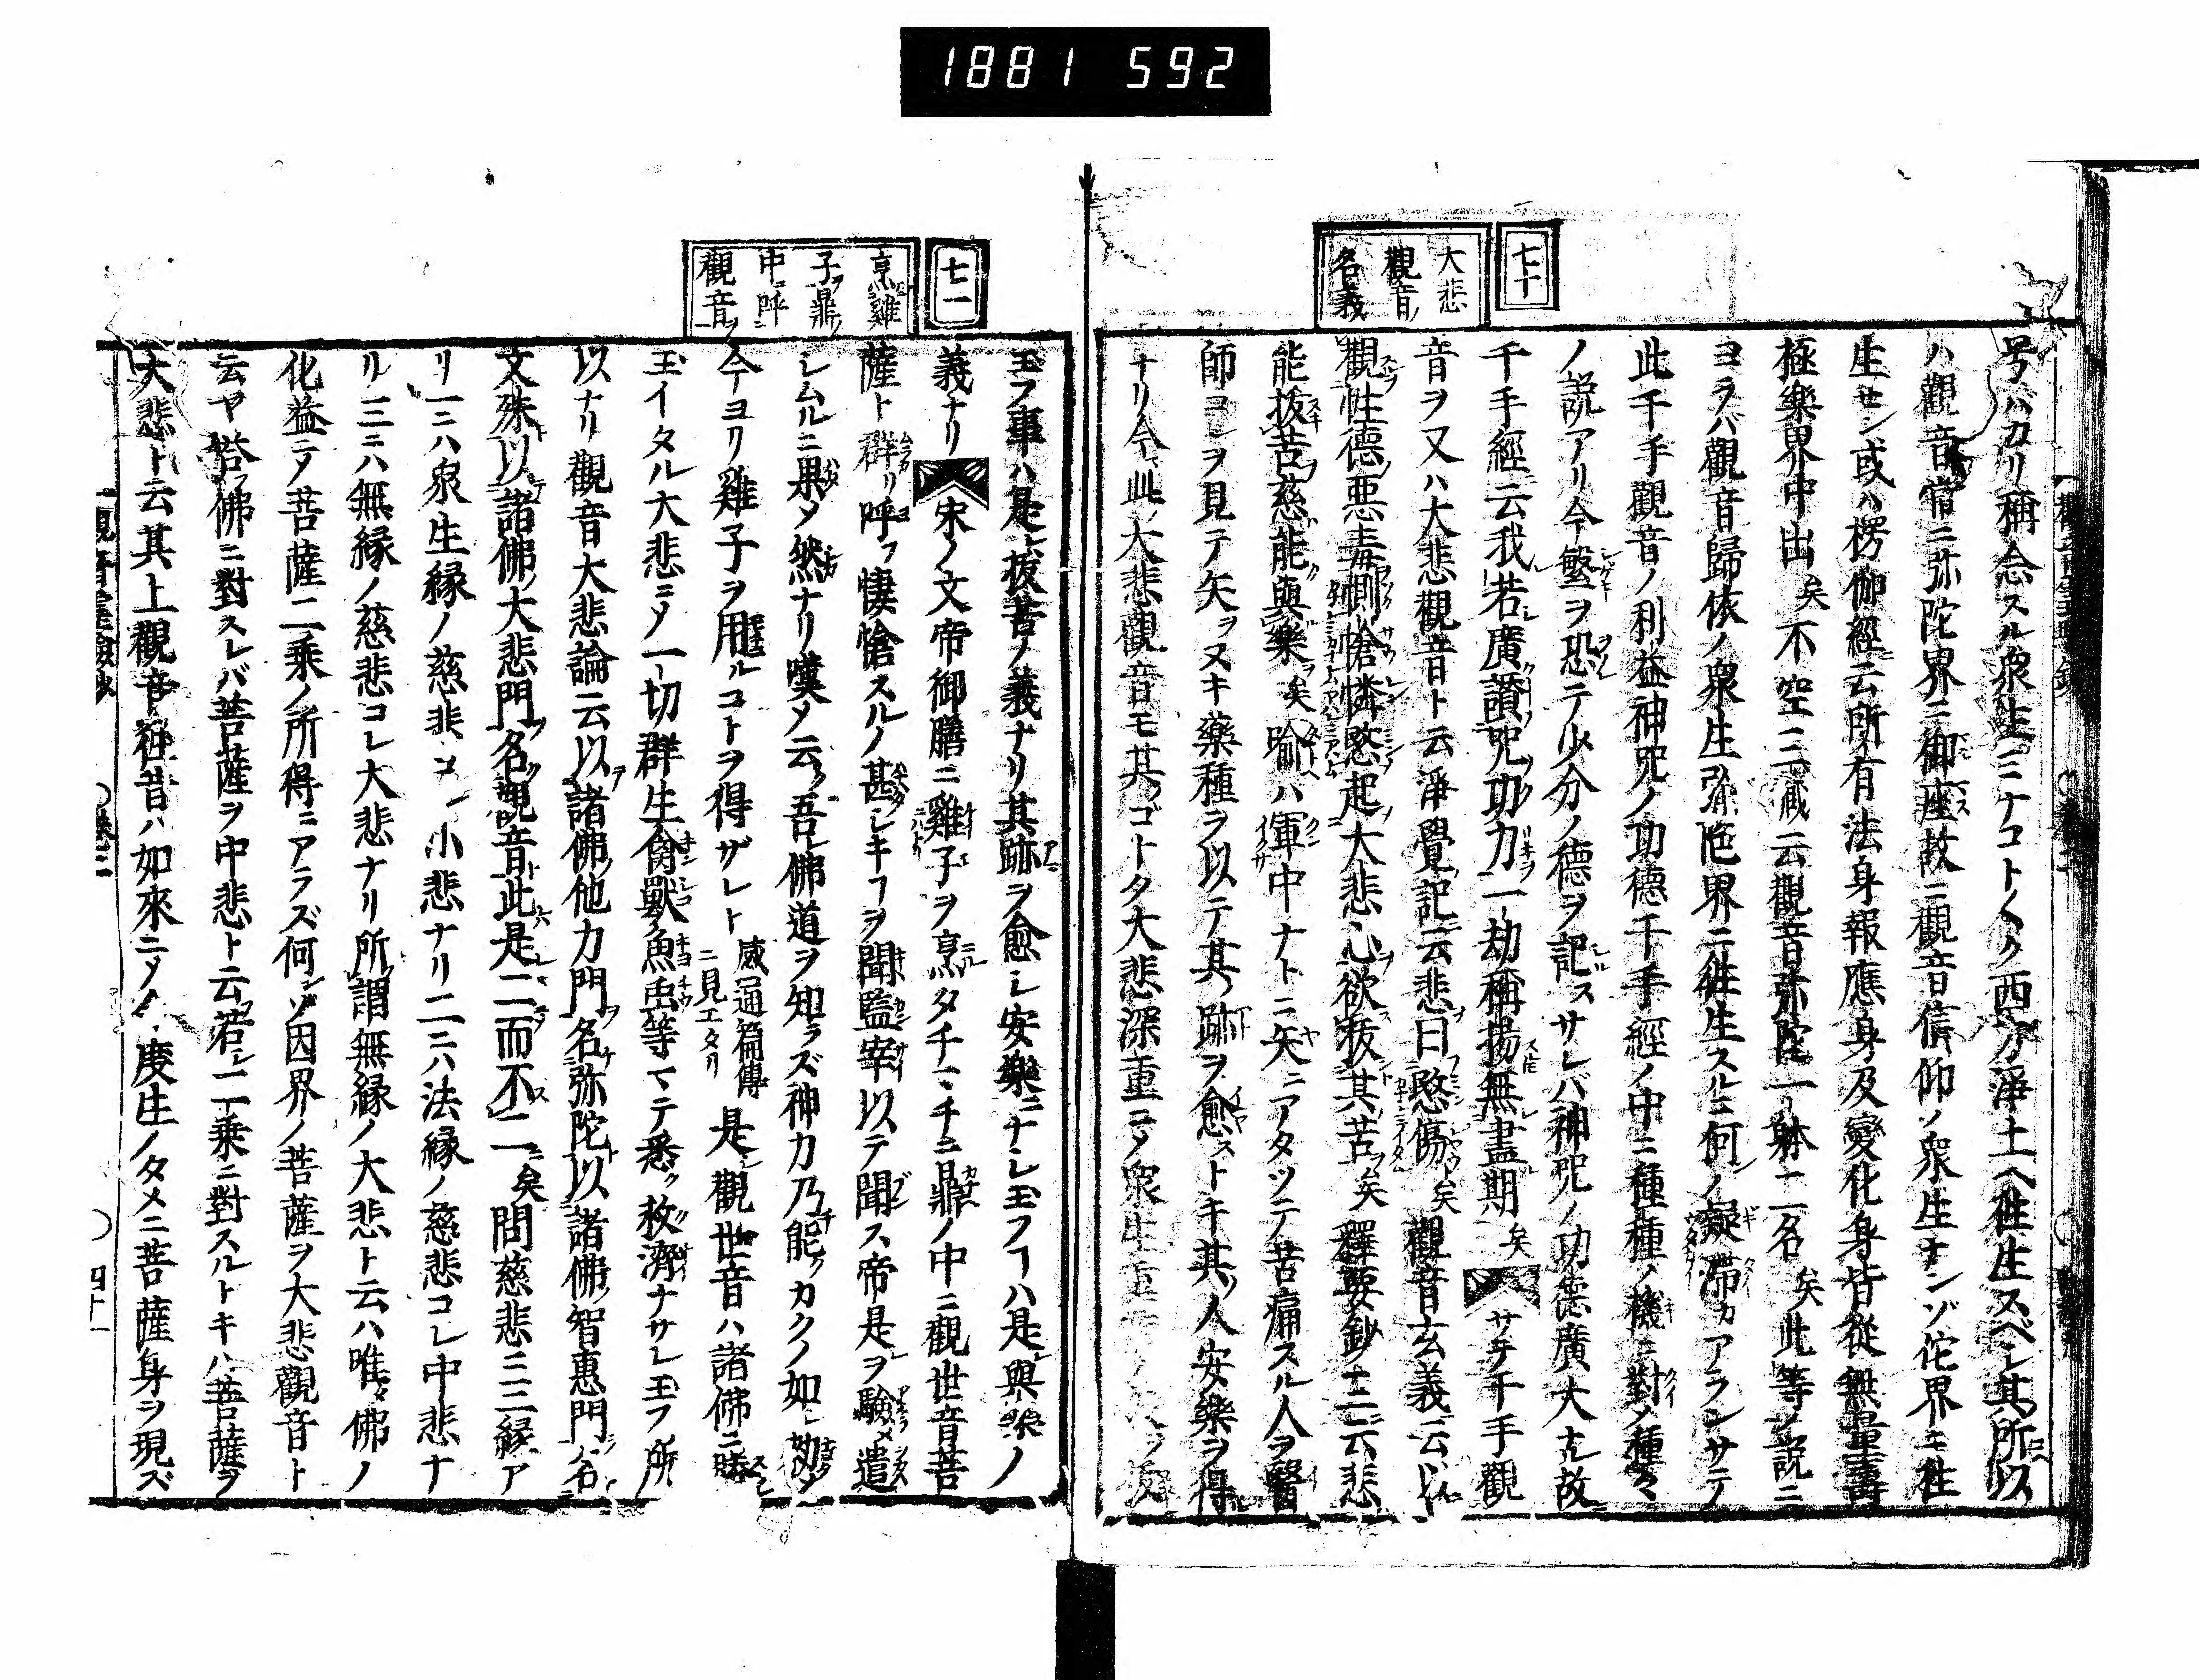 1881 592
七十
大悲
觀音ノ
名義
号バカリ稱念スル衆生ミナコト〱ク西方淨土ヘ往生スベシ其所以
ハ觀音常ニ弥陀界ニ御座故ニ觀音信仰ノ衆生ナンゾ佗界ニ往
生セン或ハ楞伽經云所有法身報應身及變化身皆從無量壽
極樂界中出矣不空三藏云觀音弥陀一躰二名矣此等ノ説ニ
ヨラバ觀音歸依ノ衆生弥陀界ニ往生スルニ何ノ疑滞カアランサテ
此千手觀音ノ利益神咒ノ功德千手經ノ中ニ種種ノ機ニ對メ種々
ノ説アリ今繁ヲ恐テ少分ノ德ヲ記スサレバ神咒ノ功德廣大ナル故
千手經云我若廣讃咒功力一劫稱揚無盡期矣サテ千手觀
音ヲ又ハ大悲觀音ト云淨覺記云悲曰愍傷矣觀音玄義云以
觀性德惡毒惻愴憐愍起大悲心欲拔其苦矣釋要鈔ノ二云悲
能拔苦慈能與樂矣喩ハ軍中ナトニ矢ニアタツテ苦痛スル人ヲ醫
師コレヲ見テ矢ヲヌキ藥種ヲ以テ其跡ヲ愈ストキ其人安樂ヲ得
ナリ今此大悲觀音モ其ゴトク大悲深重ニメ衆生
七一
烹雞
子ヲ鼎ノ
中ニ呼ニ
觀音ノ
玉フ事ハ是拔苦ノ義ナリ其跡ヲ愈シ安樂ニナシ玉フヿハ是與樂ノ
義ナリ宋ノ文帝御膳ニ雞子ヲ烹タチマチニ鼎ノ中ニ觀世音菩
薩ト群リ呼フ悽愴スルノ甚シキヿヲ聞監宰以テ聞ス帝是ヲ驗メ遣
レムルニ果メ然ナリ嘆メ云ク吾佛道ヲ知ラズ神力乃能クカクノ如シ勅メ
今ヨリ雞子ヲ用ルコトヲ得ザレト感通篇傳ニ見エタリ是觀世音ハ諸佛ニ勝
玉イタル大悲ニメ一切群生禽獸魚虫等マテ悉ク救濟ナサレ玉フ所
以ナリ觀音大悲論云以諸佛他力門名弥陀以諸佛智惠門名
文殊以諸佛大悲門名觀音此是二而不二矣問慈悲ニ三縁ア
リ一ニハ衆生縁ノ慈悲コレ小悲ナリ二ニハ法縁ノ慈悲コレ中悲ナ
リ三ニハ無縁ノ慈悲コレ大悲ナリ所謂無縁ノ大悲ト云ハ唯佛ノ
化益ニメ菩薩二乘ノ所得ニアラズ何ゾ因界ノ菩薩ヲ大悲觀音ト
云ヤ答佛ニ對スレバ菩薩ヲ中悲ト云若シ二乘ニ對スルトキハ菩薩ヲ
大悲ト云其上觀音往昔ハ如來ニメ今度生ノタメニ菩薩身ヲ現ズ
四十一